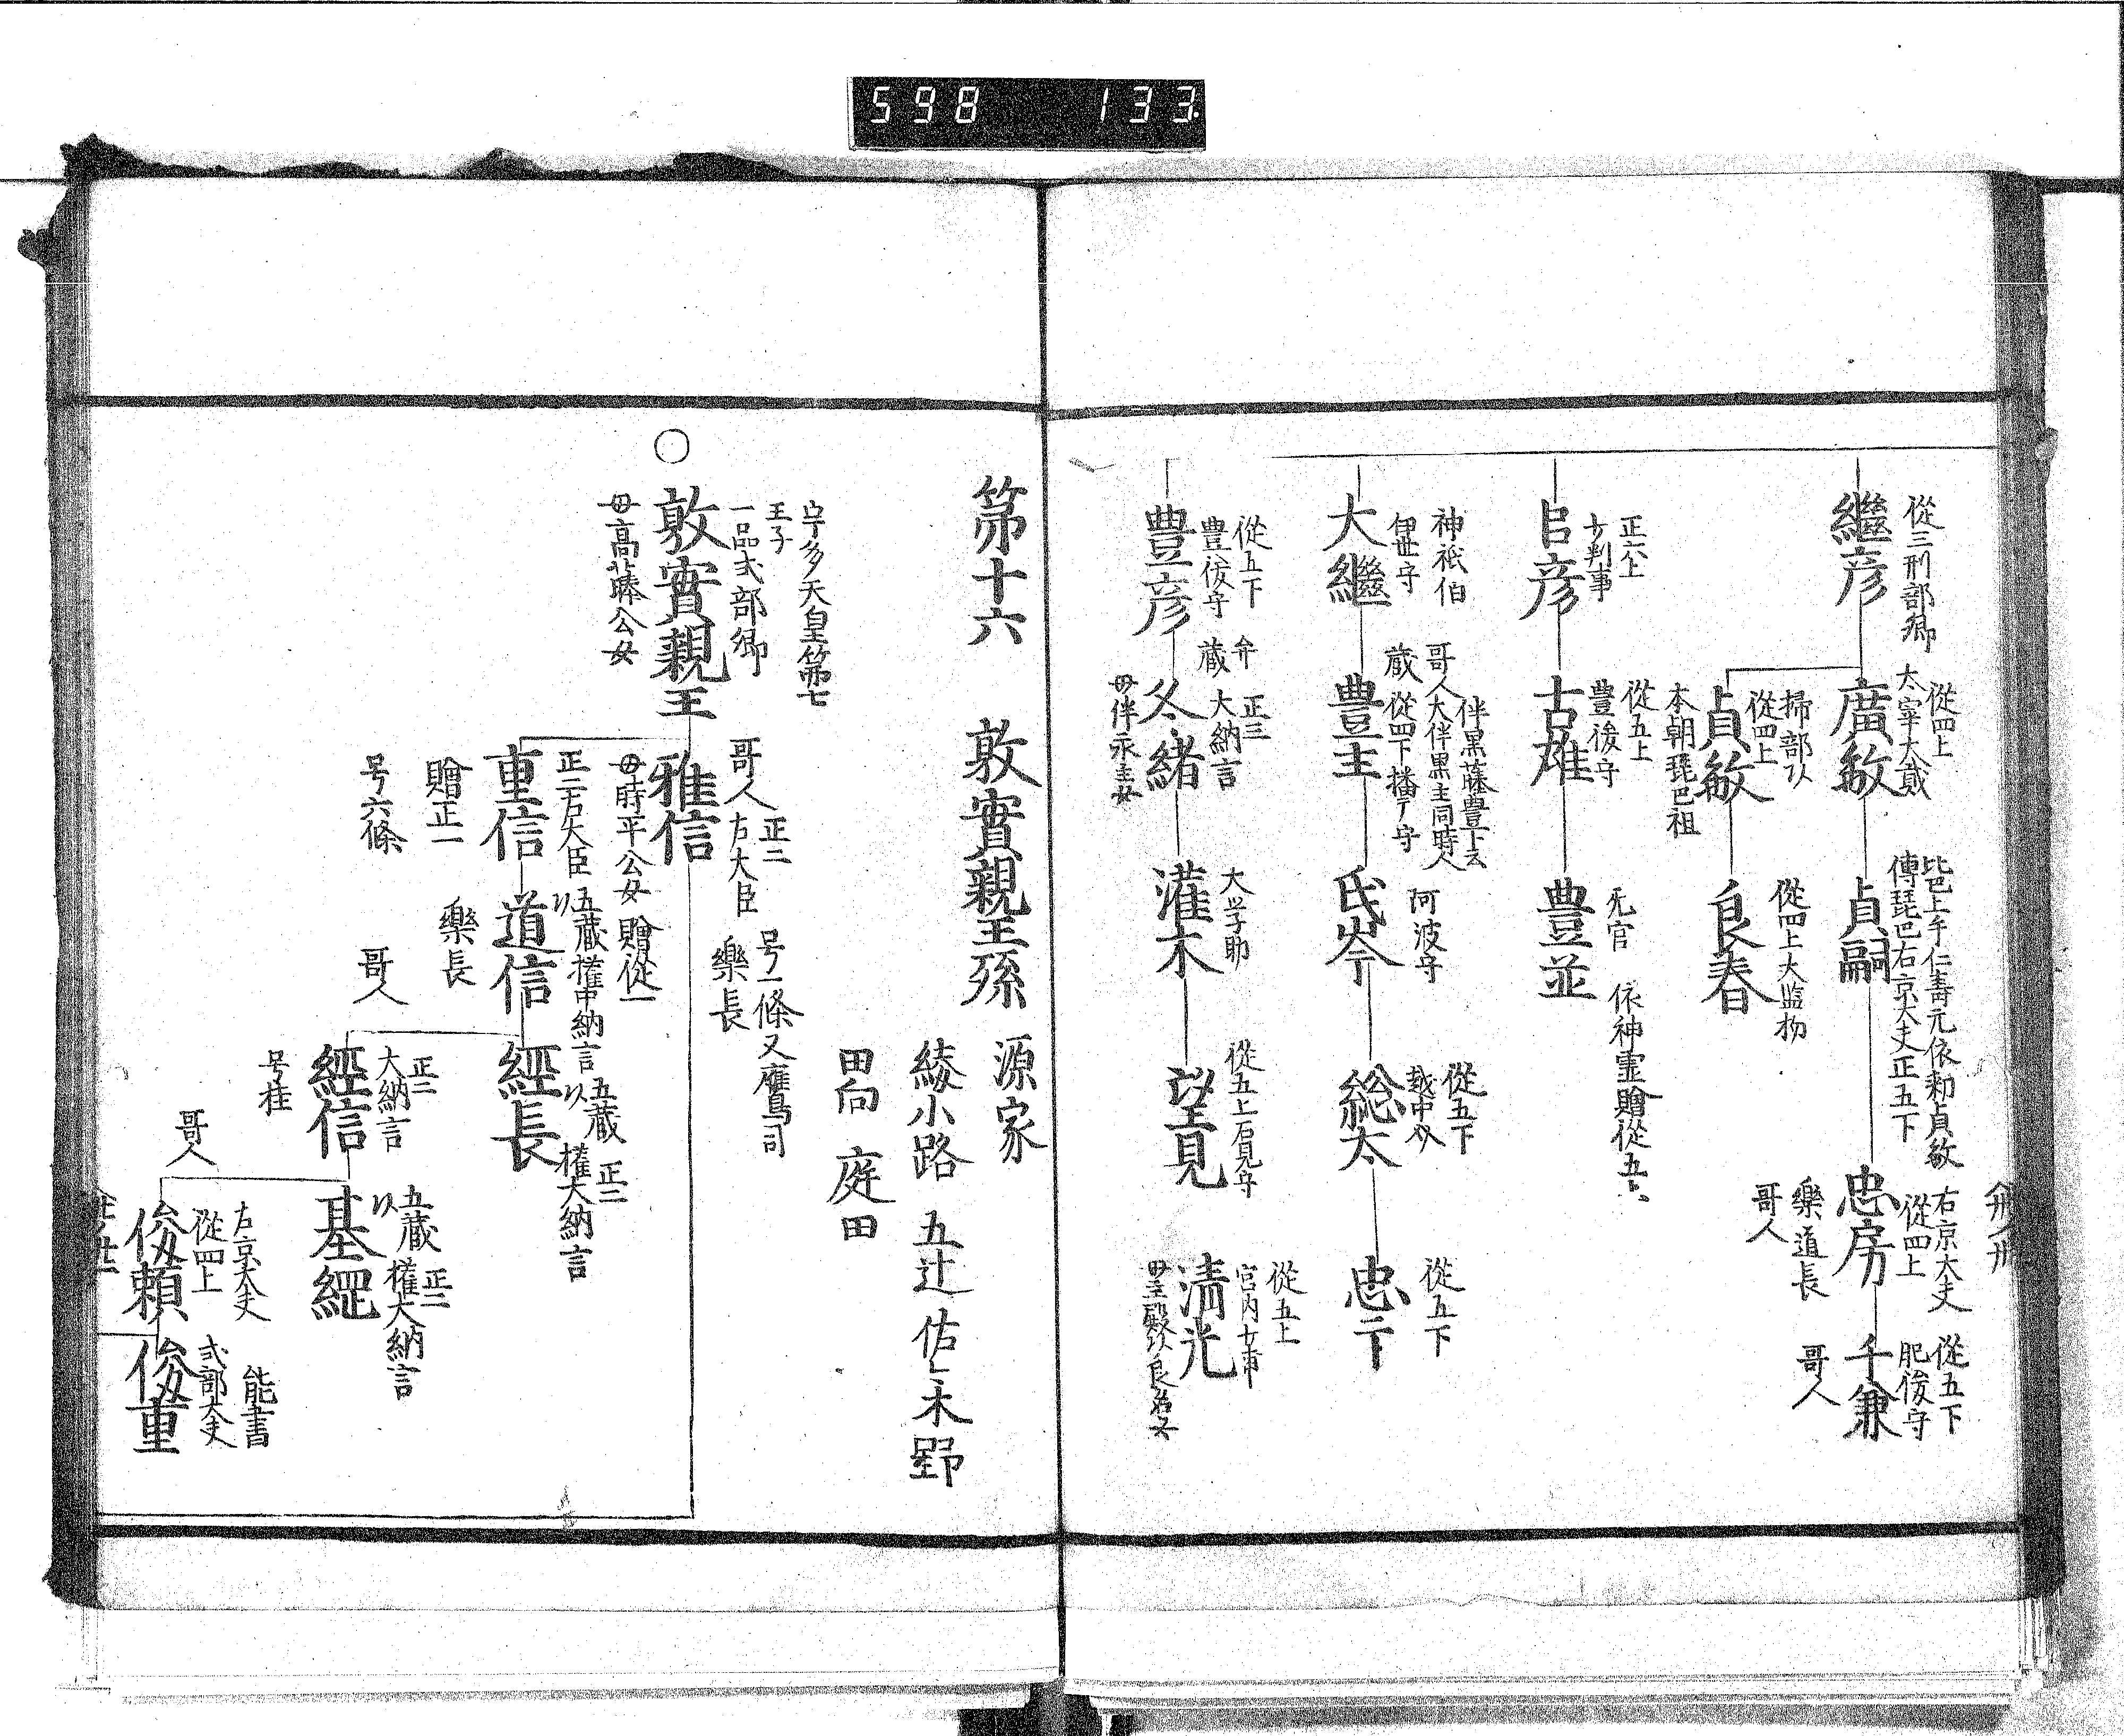 598 133
從三刑部卿
繼彦
從四上
太宰大貳
廣敏
掃部以
從四上
貞敏
本朝琵巴祖
琵巴上手仁壽元依勅貞敏
傳琵巴右京大夫正五下
貞嗣
從四上大監物
良春
右京大夫
從四上
忠房
樂道長
哥人
從五下
肥後守
千兼
哥人
正六上
少判事
臣彦
從五上
豊後守
古雄
无官 依神霊贈從五下
豊並
神祇伯
伊世守
大繼
伴黒藤豊下云
哥人大伴黒主同時人
蔵 從四下播磨守
豊主
阿波守
氏岑
從五下
越中
総太
從五下
忠二下
從五下
豊後守
豊彦
弁
蔵
正三
大納言
冬緒
母伴永主女
大学助
灌木
從五上石見守
望見
從五上
宮内少甫
清光
第十六 敦實親王孫
源家
綾小路 五辻 佐々木野
田向 庭田
〇
宇多天皇第七
王子
一品式部卿
敦實親王
母高藤公女
哥人
正二
左大臣
雅信
母時平公女 贈從一
号一條又鷹司
樂長
正二右大臣
重信
贈正一
号六條
五蔵 權中納言
以
道信
樂長
哥人
五蔵
以
正二
權大納言
經長
正二
大納言
經信
号桂
哥人
五蔵
以
正二
權大納言
基綱
右京大夫
從四上
俊頼
能書
式部大夫
俊重